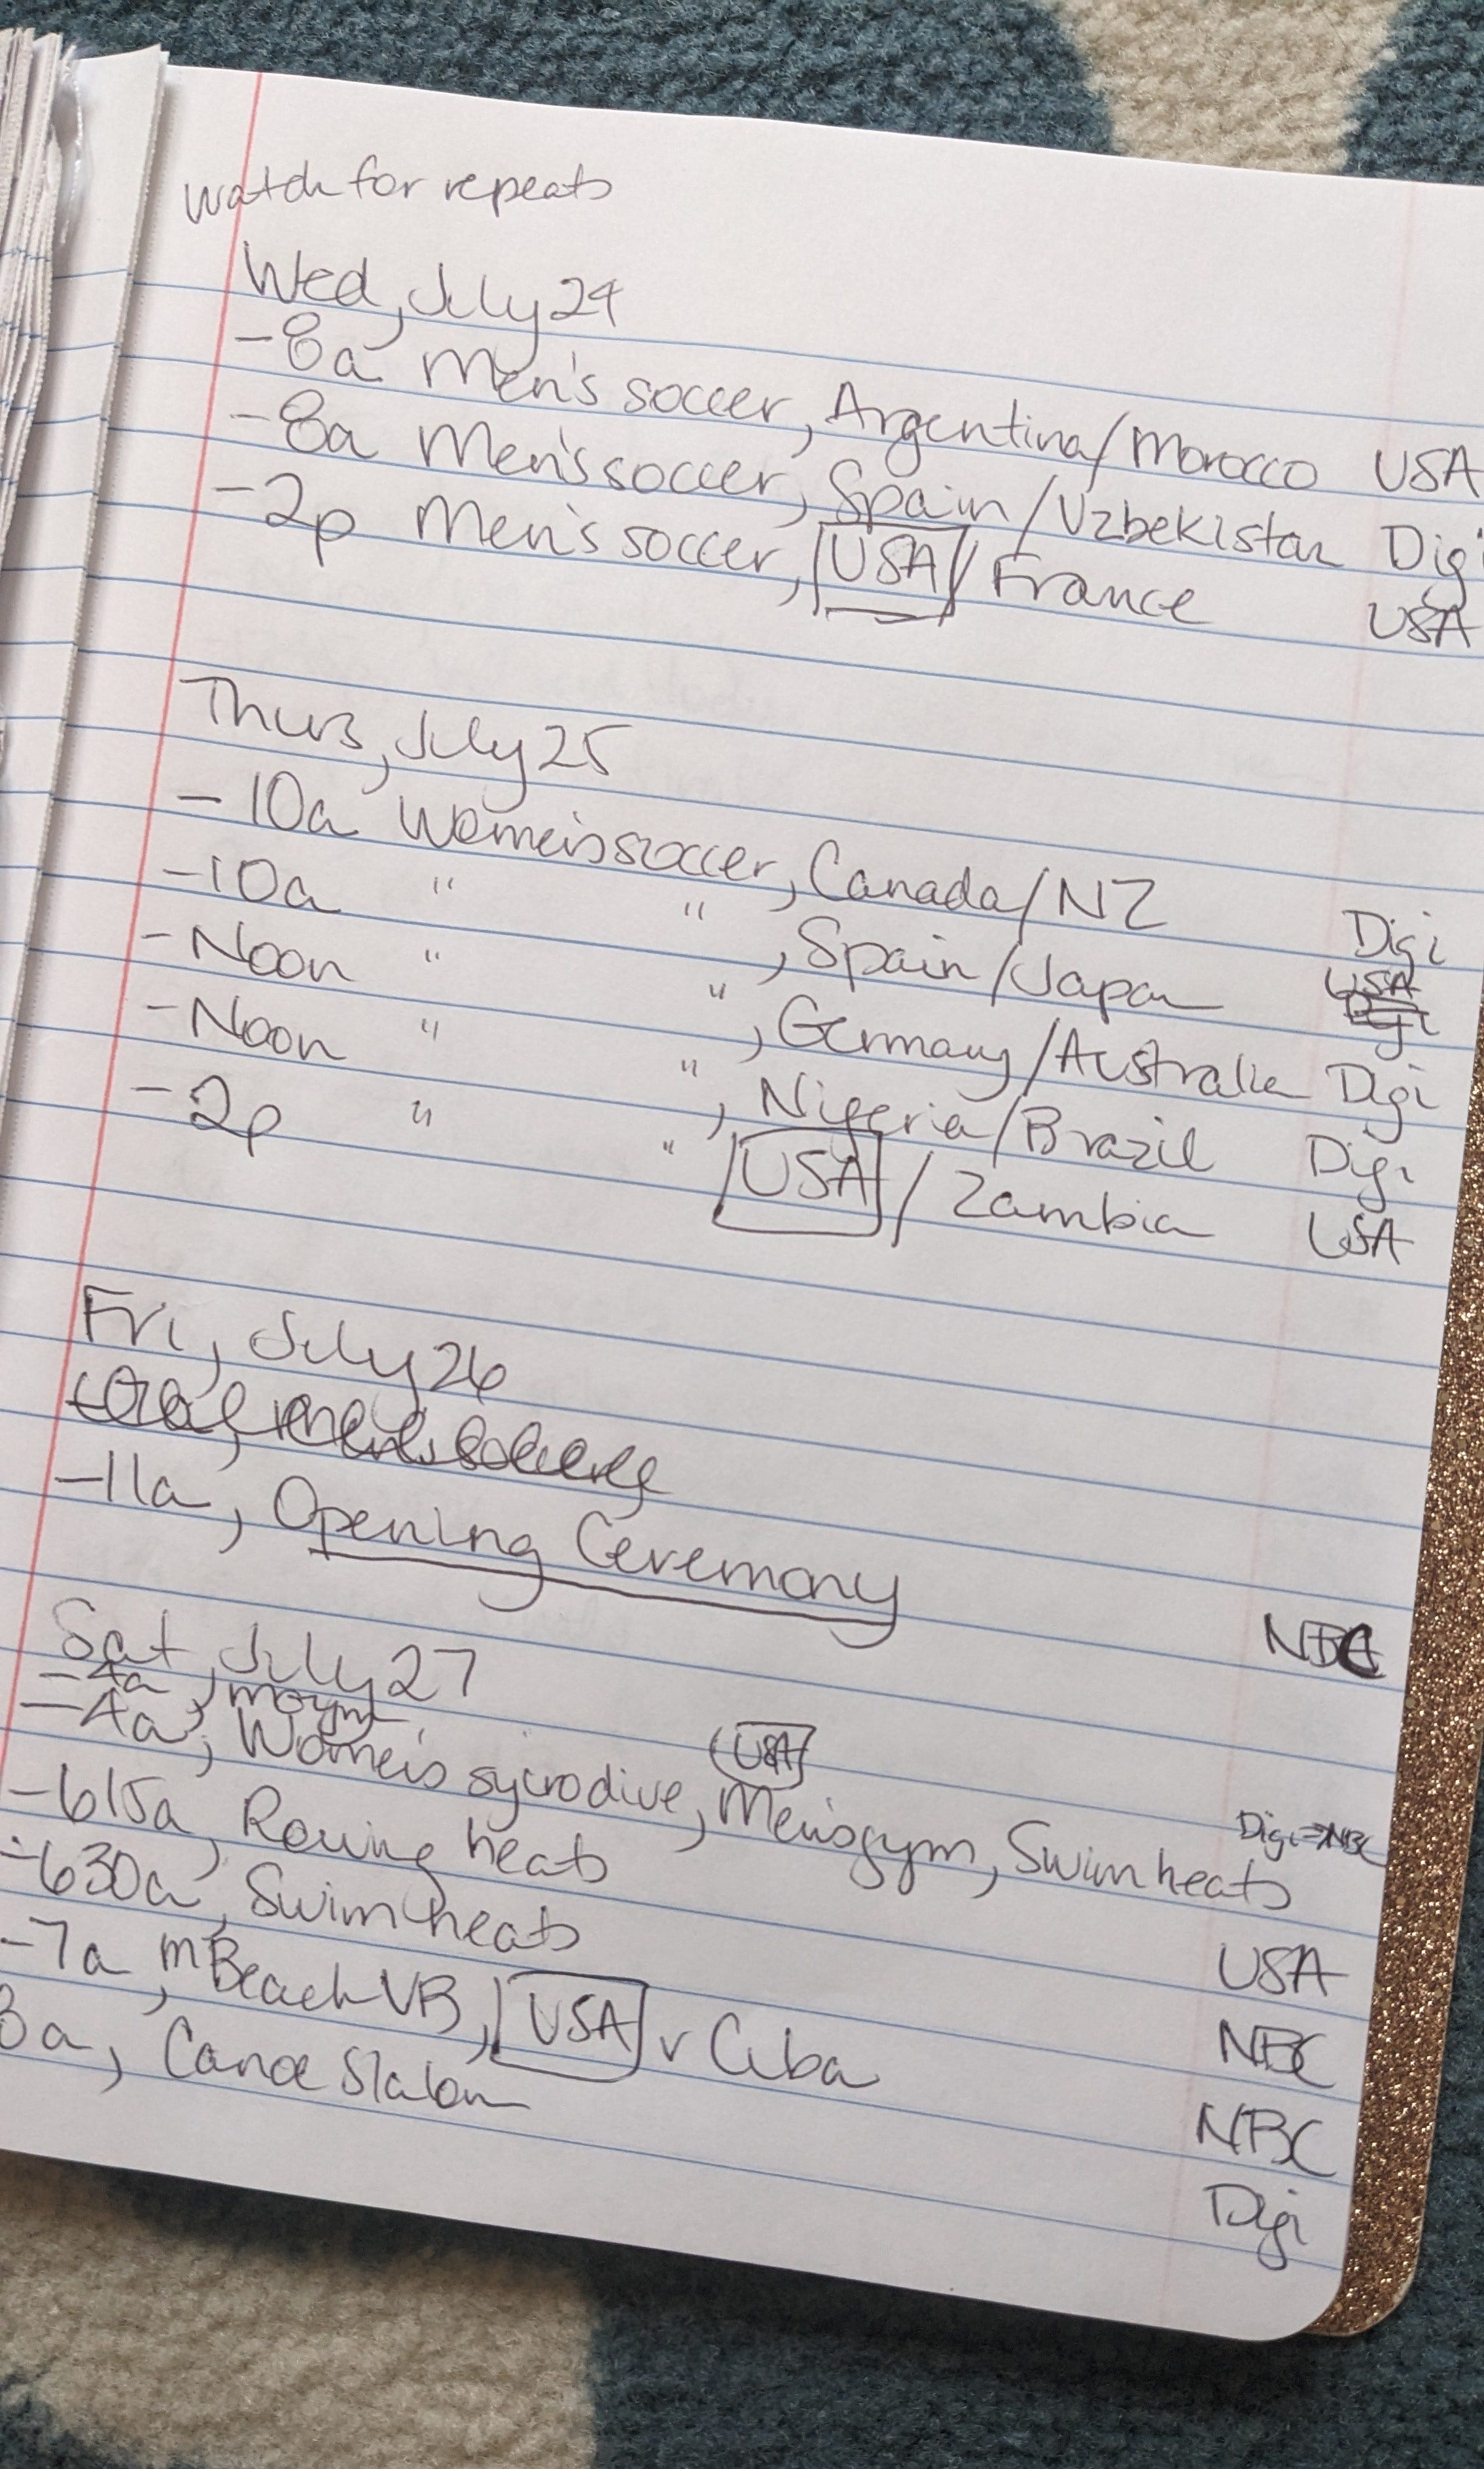 watch for repeats
Wed, July 24
-8a Men's soccer, Argentina/Morocco USA
-8a Men's soccer, Spain/Uzbekistan Digi
-2p Men's soccer, USA/France USA
Thurs, July 25
-10a Women's soccer, Canada/NZ Digi
-10a " ", Spain/Japan USA
-Noon " ", Germany/Australia Digi
-Noon " ", Nigeria/Brazil Digi
-2p " " USA/Zambia USA
Fri, July 26
-11a, Opening Ceremony NBC
Sat, July 27
-4a, mgym
-4a, Women's sycro dive, USA Men's gym, Swim heats Digi→NBC
-615a, Rowing heats USA
-630a, Swim heats NBC
-7a, m Beach VB, USA v Cuba NBC
8a, Canoe Slalom Digi